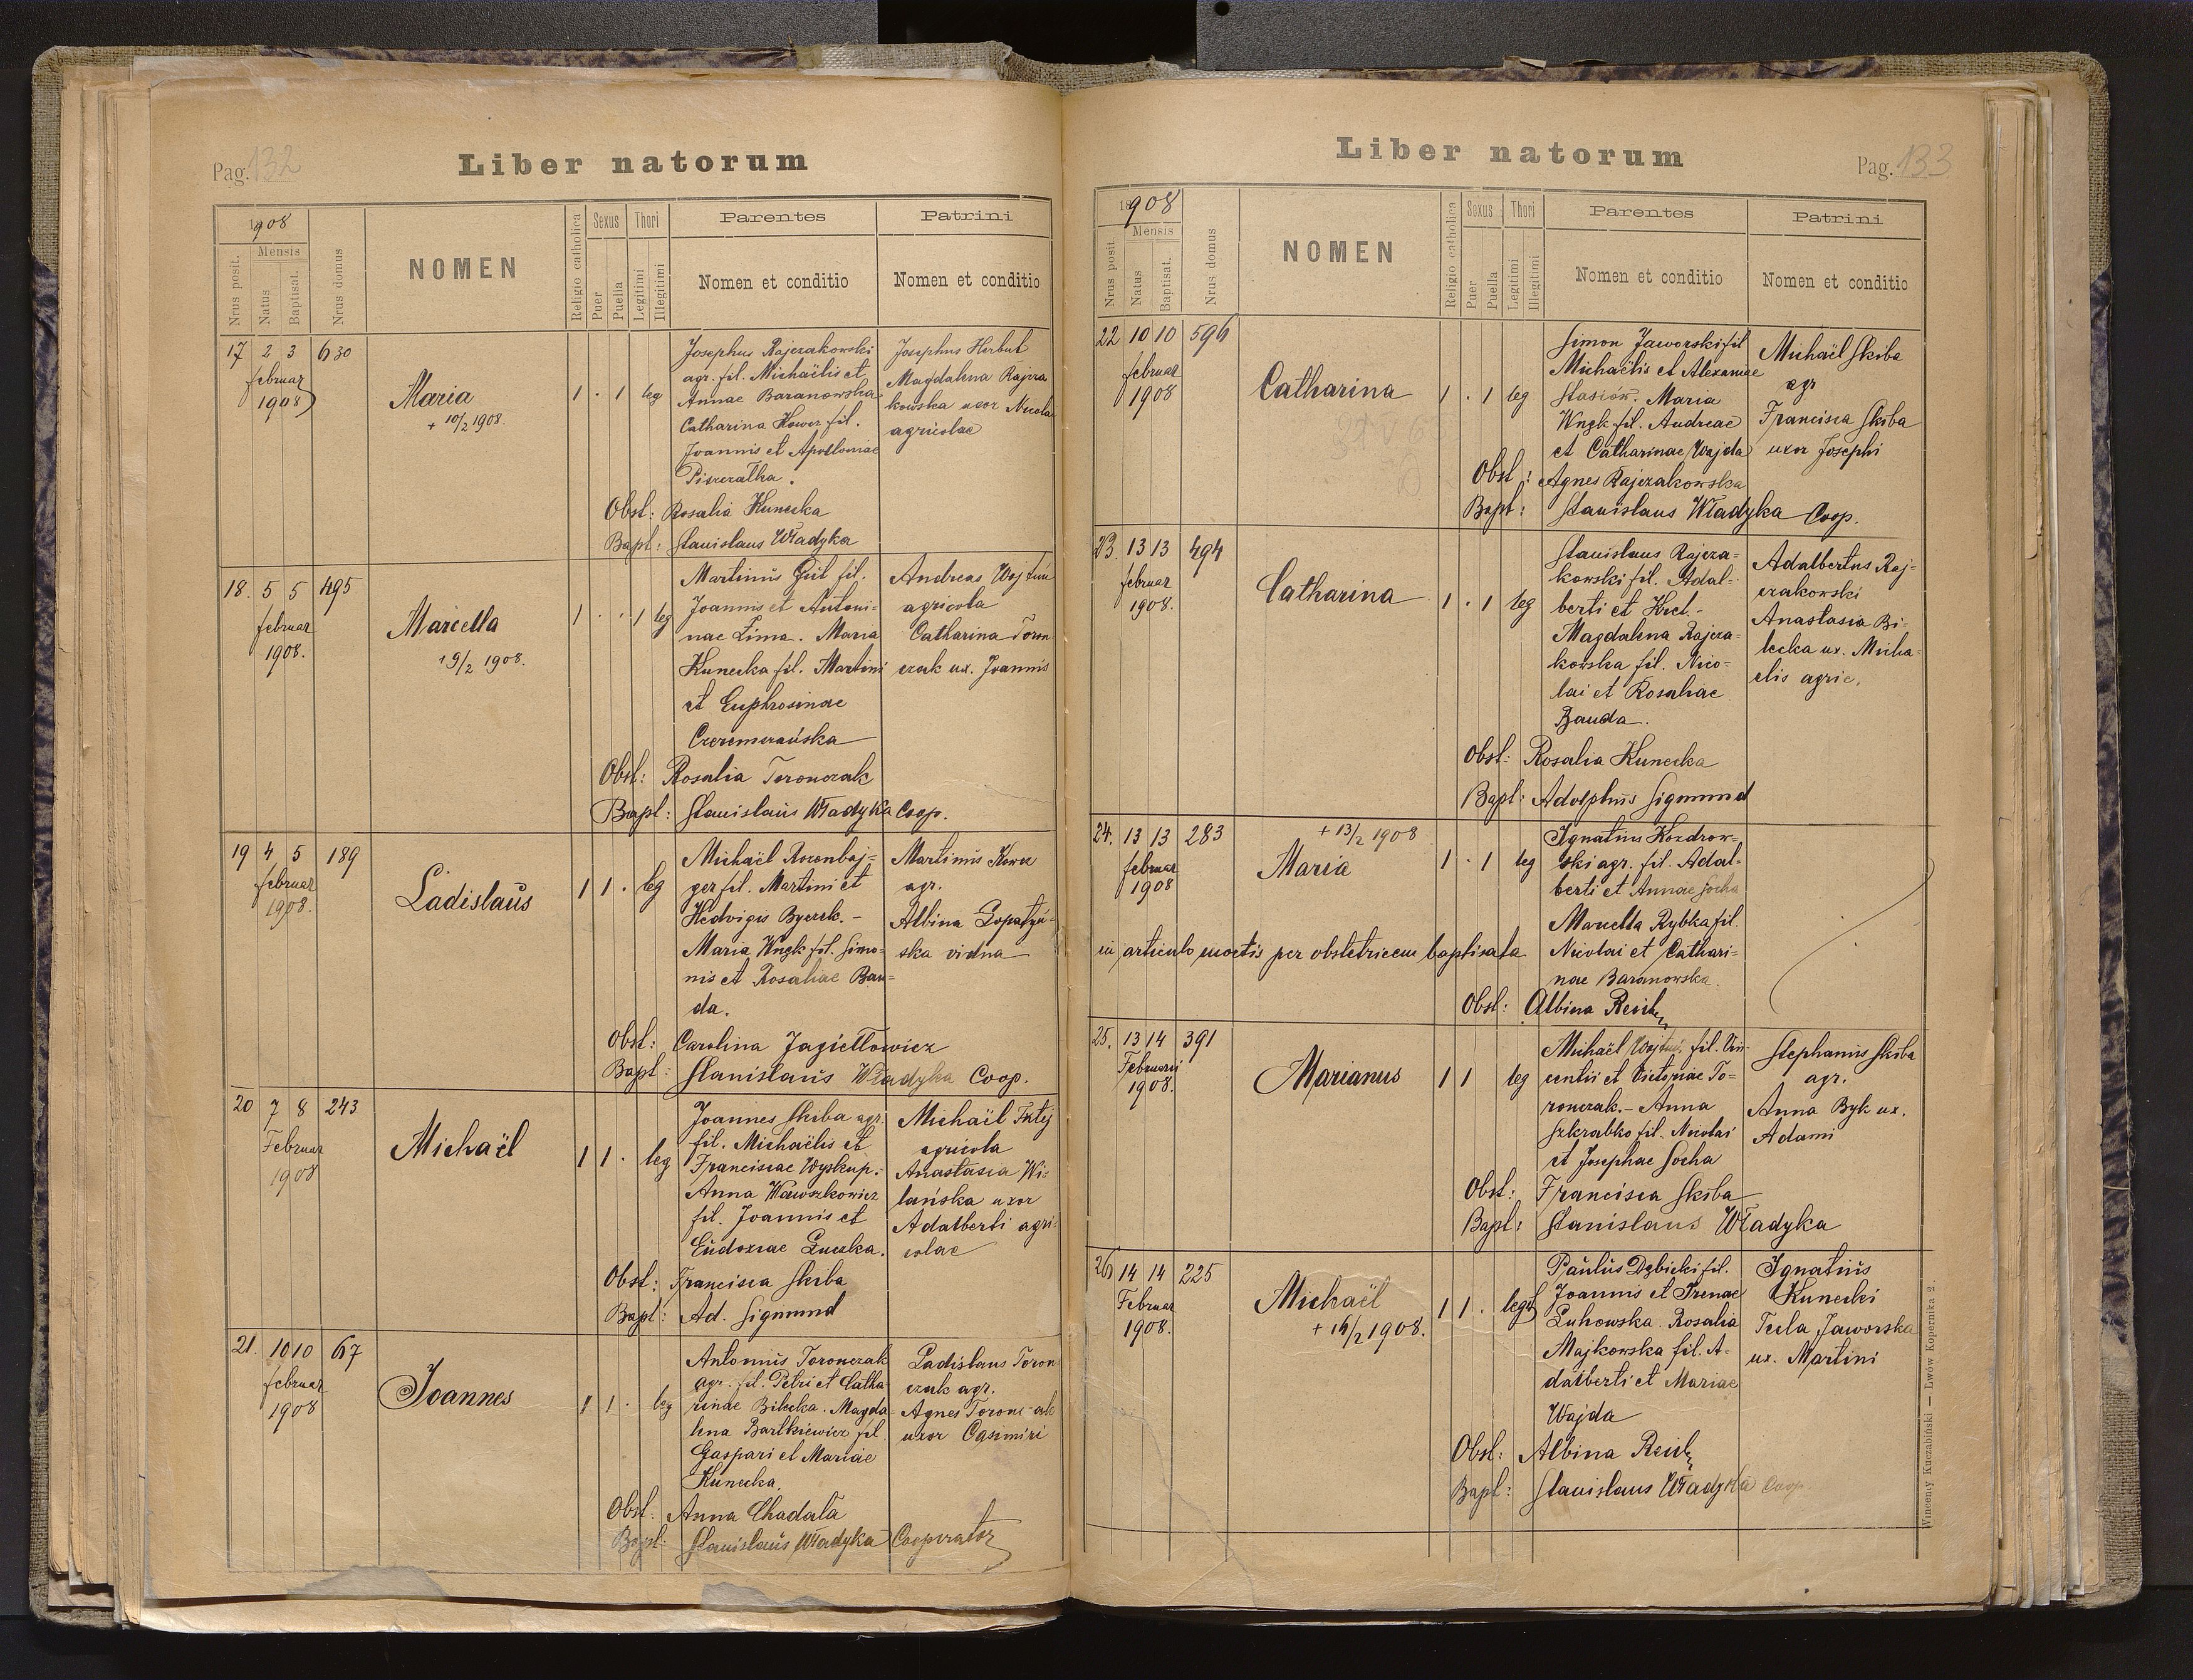 Pag. 132
Liber natorum
1908
Mensis
Nrus posit.
Natus
Baptisat.
Nrus domus
NOMEN
Religio catholica
Sexus
Puer
Puella
Thori
Legitimi
Illegitimi
Parentes
Nomen et conditio
Patrini
Nomen et conditio
17 2 3 630
februar
1908
Maria
+ 10/2 1908.
1 . 1 leg
Josephus Rajczakowski
agr. fil. Michaëlis et
Annae Baranowska
Catharina Kower fil.
Joannis et Apolloniae
Josephus Herbut
Magdalena Rajcza
kowska uxor Nicola
agricolae
Obst: Rosalia Kunecka
Bapt: Stanislaus Władyka
18. 5 5 495
februar
1908.
Marcella
+ 9/2 1908.
1 . . 1 leg
Martinus Gut fil.
Joannis et Antoni=
nae Zima. Maria
Kunecka fil. Martini
et Euphrosinae
Czeremszańska
Andreas Wojtuń
agricola
Catharina Toron
czak ux. Joannis
Obst: Rosalia Toronczak
Bapt: Stanislaus Władyka Coop.
19 4 5 189
februar
1908.
Ladislaus
1 1 . leg
Michaël Rozenbaj=
ger fil. Martini et
Hedvigis Byczek. -
Maria Wngk fil. Simo-
nis et Rosaliae Ban=
da.
Martinus Kower
agr.
Albina Łopatyń-
ska vidua
Obst: Carolina Jagiełłowicz
Bapt: Stanislaus Władyka Coop.
20 7 8 243
Februar
1908
Michaël
1 1 . leg
Joannes Skiba agr.
fil. Michaëlis et
Franciscae Wyskup.
Anna Wawoszkowicz
fil. Joannis et
Eudoxiae Luczka.
Michaël Futyj
agricola
Anastasia Wi=
lańska uxor
Adalberti agri-
colae
Obst: Francisca Skiba
Bapt: Ad. Sigmund
21. 10 10 67
februar
1908
Joannes
1 1 . leg
Antonius Toronczak
agr. fil. Petri et Catha
rinae Bilecka. Magda-
lena Bartkiewicz fil.
Gaspari et Mariae
Kunecka.
Ladislaus Toron
czak agr.
Agnes Toroncak
uxor Casimiri
Obst. Anna Chadała
Bapt: Stanislaus Władyka Cooperator
Liber natorum
Pag. 133
1908
Mensis
Nrus posit
Natus
Baptisat.
Nrus domus
NOMEN
Religio catholica
Sexus
Puer
Puella
Thori
Legitimi
Illegitimi
Parentes
Nomen et conditio
Patrini
Nomen et conditio
22 10 10 596
februar
1908
Catharina
1 . 1 leg
Simon Jaworski fil
Michaëlis et Alexandrae
Stasiów. Maria
Wngk fil. Andreae
et Catharinae Wajda
Michaël Skiba
agr
Francisca Skiba
uxor Josephi
Obst: Agnes Rajczakowska
Bapt: Stanislaus Władyka Coop.
23. 13 13 494
februar
1908.
Catharina
1 . 1 leg
Stanislaus Rajcza=
kowski fil. Adal=
berti et Hrel.-
Magdalena Rajcza=
kowska fil. Nico=
lai et Rosaliae
Banda.
Adalbertus Raj=
czakowski
Anastasia Bi-
lecka ux. Micha-
elis agric.
Obst: Rosalia Kunecka
Bapt: Adolphus Sigmund
24. 13 13 283
februar
1908
+ 13/2 1908
Maria
1 . 1 leg
Ignatius Kozdrow=
ski agr. fil. Adal-
berti et Annae Socha
Marcella Rybka fil.
Nicolai et Cathari=
nae Baranowska.
in articulo mortis per obstetricem baptisata
Obst: Albina Reich
25. 13 14 391
Februarii
1908.
Marianus
1 1 leg
Michaël Wojtuń, fil. Vin-
centii et Victoriae To=
ronczak. - Anna
Szkrabko fil. Nicolai
et Josephae Socha
Stephanus Skiba
agr.
Anna Byk ux.
Adami
Obst: Francisca Skiba
Bapt: Stanislaus Władyka
26 14 14 225
Februar
1908.
Michaël
+ 16/2 1908.
1 1 . legit
Paulus Dębicki fil.
Joannis et Irenae
Luhowska. Rosalia
Majkowska fil. A-
dalberti et Mariae
Wajda
Ignatius
Kunecki
Tecla Jaworska
ux. Martini
Obst: Albina Reich
Bapt: Stanislaus Władyka Coop.
Wincenty Kuczabiński — Lwów Kopernika 2.